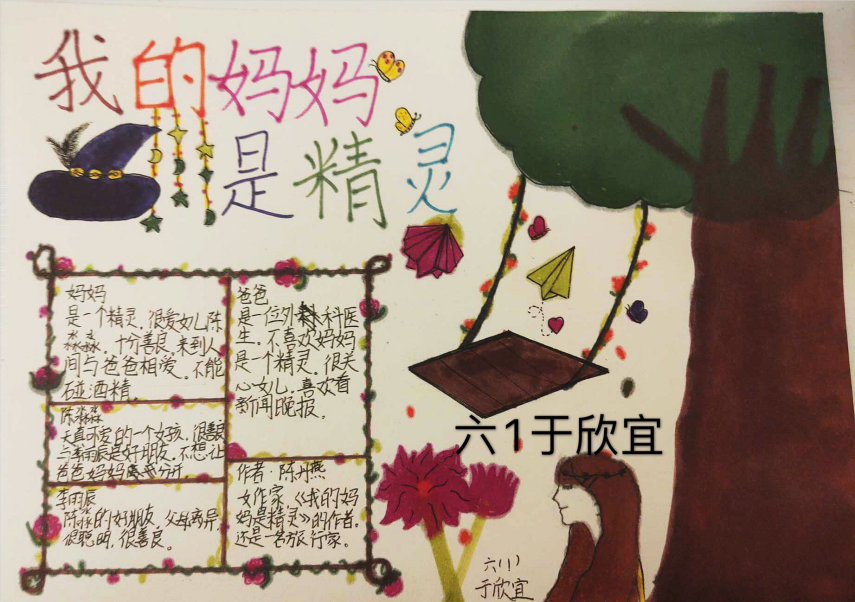 我的妈妈
是精灵
妈妈
是一个精灵。很爱女儿陈
淼淼，十分善良，来到人
间与爸爸相爱。不能
碰酒精。
爸爸
是一位外科医
生。不喜欢妈妈
是一个精灵。很关
心女儿。喜欢看
新闻晚报。
陈淼淼
天真可爱的一个女孩，很善良
与李雨辰是好朋友。不想让
爸爸妈妈分开。
李雨辰
陈淼的好朋友，父母离异，
很聪明，很善良。
作者·陈丹燕
女作家《我的妈
妈是精灵》的作者。
还是一名旅行家。
六1于欣宜
六(1)
于欣宜